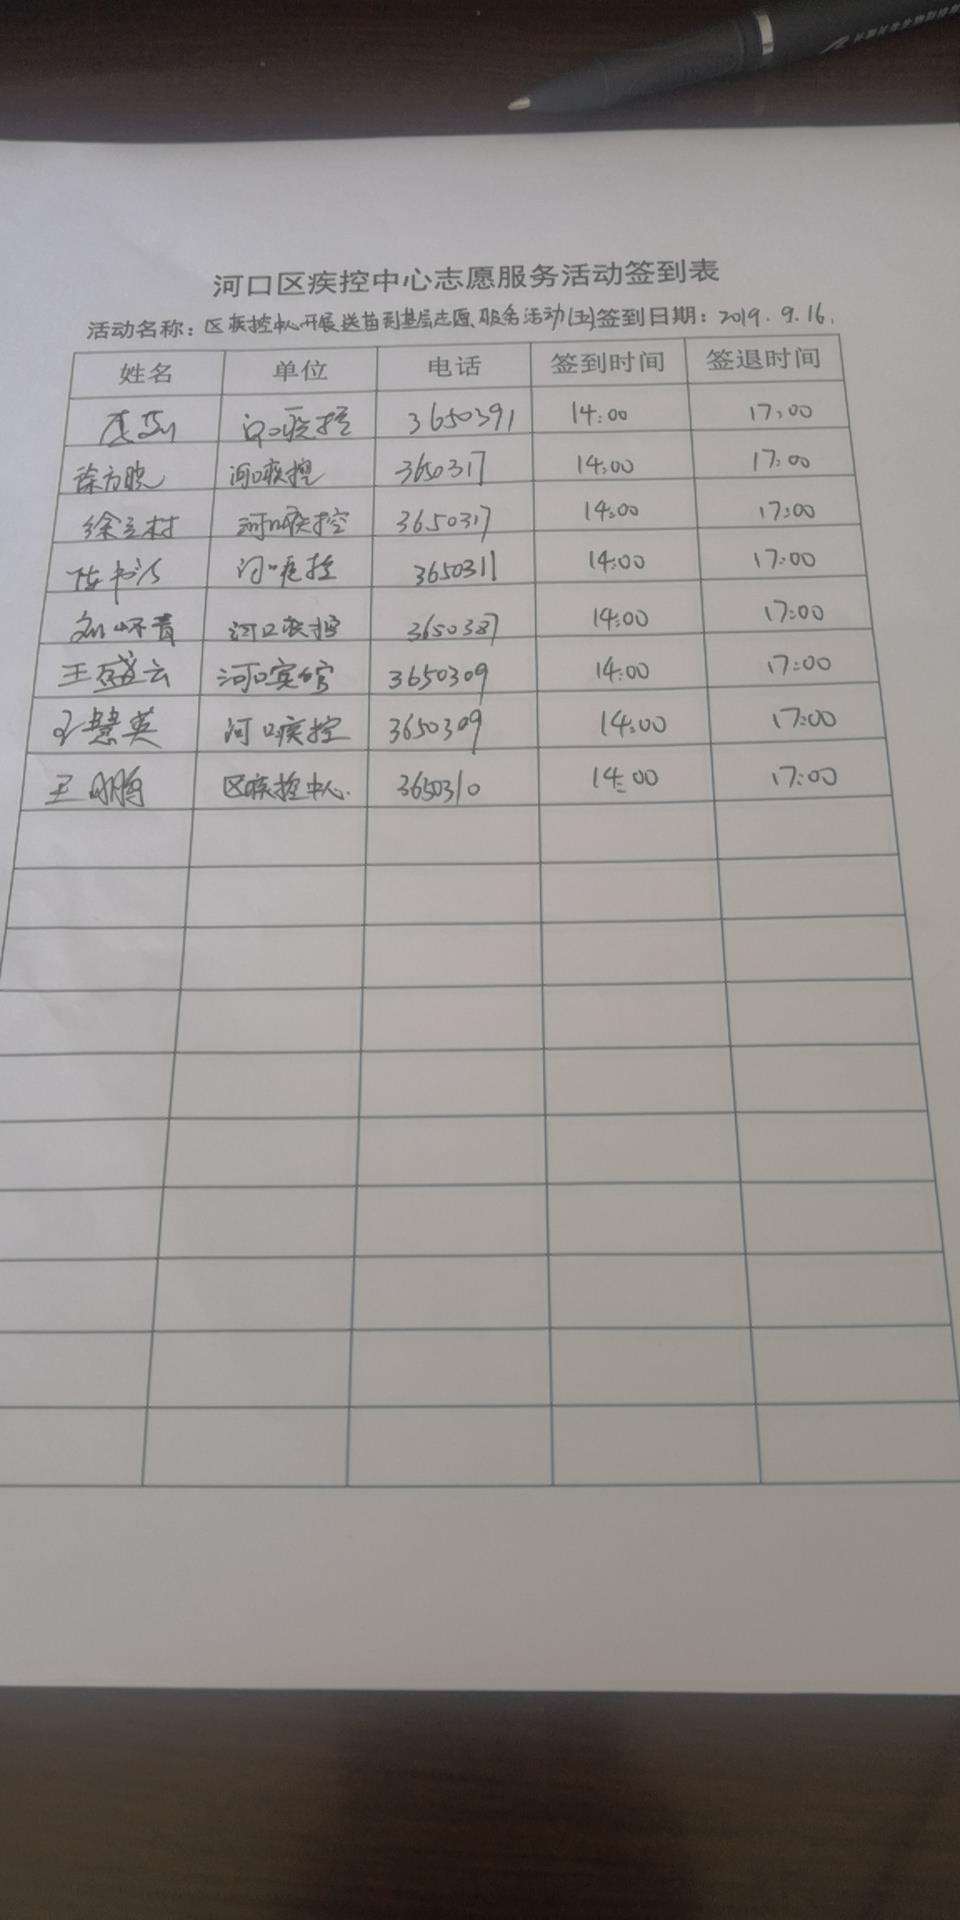 河口区疾控中心志愿服务活动签到表
活动名称：区疾控中心开展送苗到基层志愿服务活动(五)签到日期：2019.9.16.
姓名 单位 电话 签到时间 签退时间
疾控 3650391 14:00 17:00
河口疾控 3650317 14:00 17:00
徐立村 河口疾控 3650317 14:00 17:00
河口疾控 3650311 14:00 17:00
河口疾控 3650387 14:00 17:00
王盛云 河口宾馆 3650309 14:00 17:00
慧英 河口疾控 3650309 14:00 17:00
王 鹏 区疾控中心. 3650310 14:00 17:00